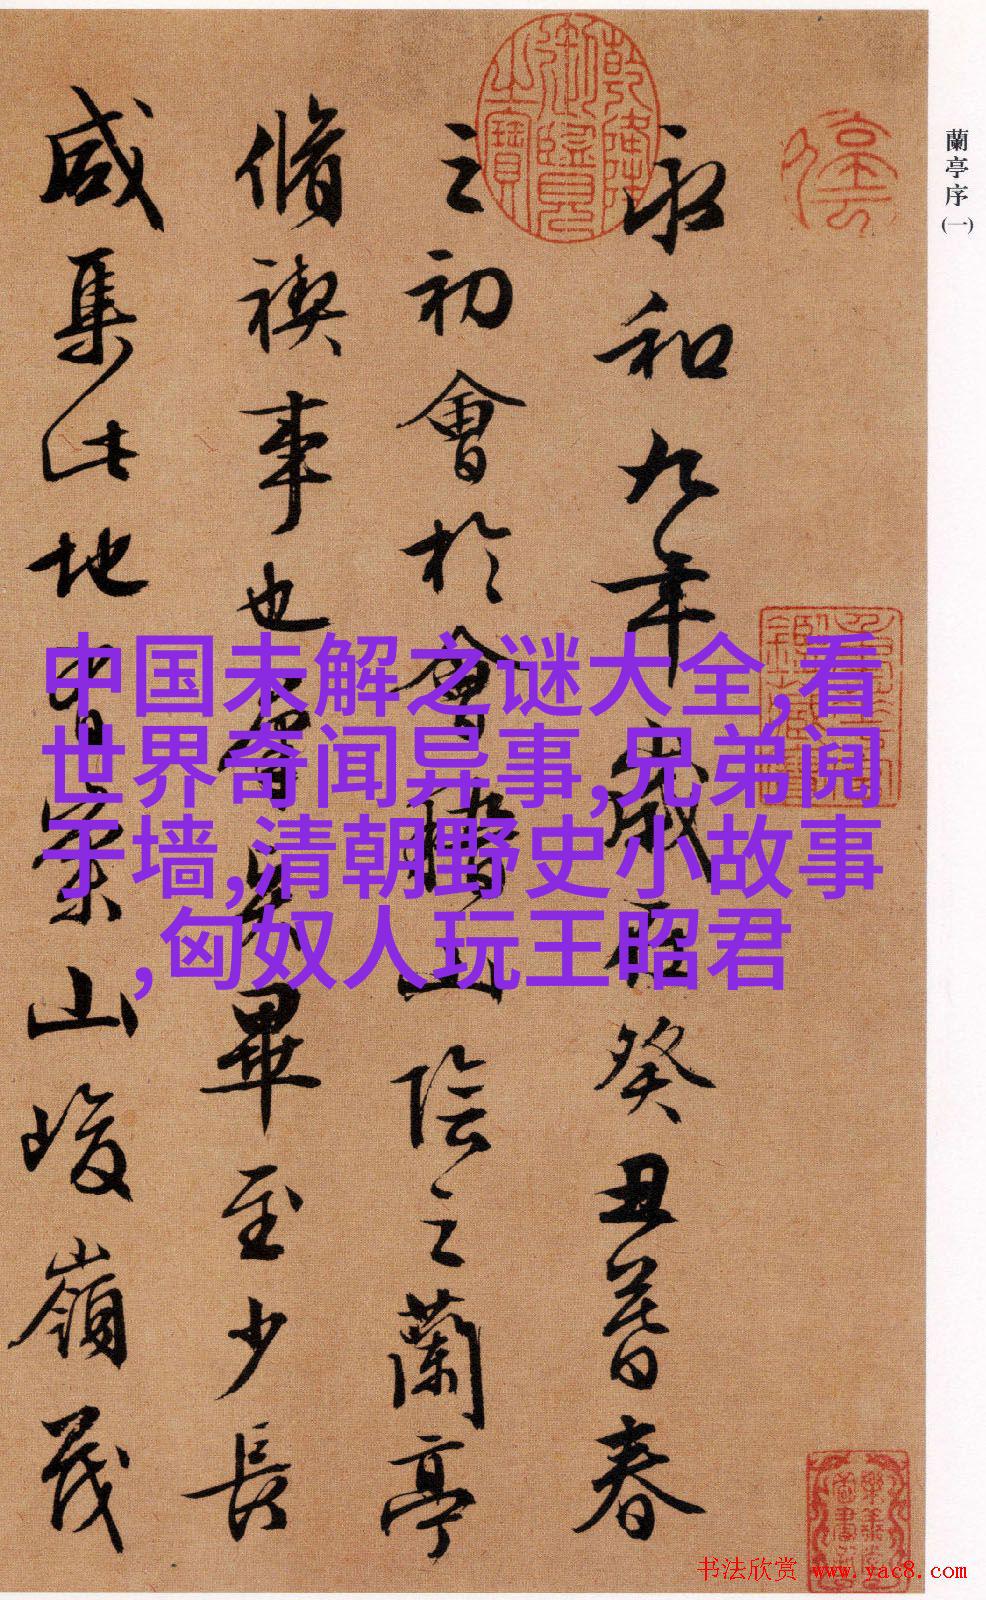 蘭亭序(一)
永和九年歲在癸丑暮春
之初會於會稽山陰之蘭亭
脩禊事也羣賢畢至少長
咸集此地有崇山峻嶺茂
乾隆御覽之寶
中国未解之谜大全,看
世界奇闻异事,兄弟阋
于墙,清朝野史小故事
,匈奴人玩王昭君
书法欣赏 www.yac8.com